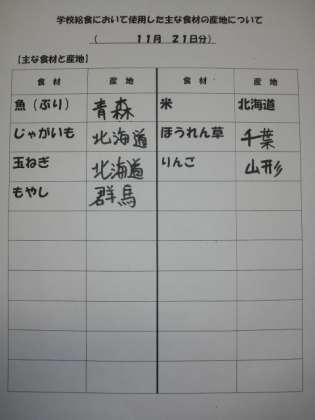 学校給食において使用した主な食材の産地について
（　　　１１月　２１日分）
【主な食材と産地】
食材　産地　食材　産地
魚（ぶり）　青森　米　北海道
じゃがいも　北海道　ほうれん草　千葉
玉ねぎ　北海道　りんご　山形
もやし　群馬